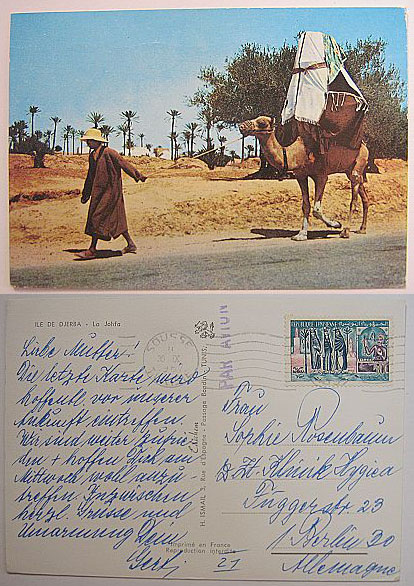 ILE DE DJERBA - La Johfa
SOUSSE
PAR AVION
REPUBLIQUE TUNISIENNE
Liebe Mutter!
Die letzte Karte wird
hoffentl. vor unserer
Ankunft eintreffen.
Wir sind weiter zufrie-
den + hoffen Dich am
Mittwoch wohl anzu-
treffen. Inzwischen
herzl. Grüsse und
Umarmung Dein
H. ISMAIL 3, Rue d'Espagne - Passage TUNIS
Imprimé en France
Reproduction interdite
Frau
Sophie Rosenbaum
Klinik Hygiea
Fuggerstr. 23
1 Berlin 30
Allemagne